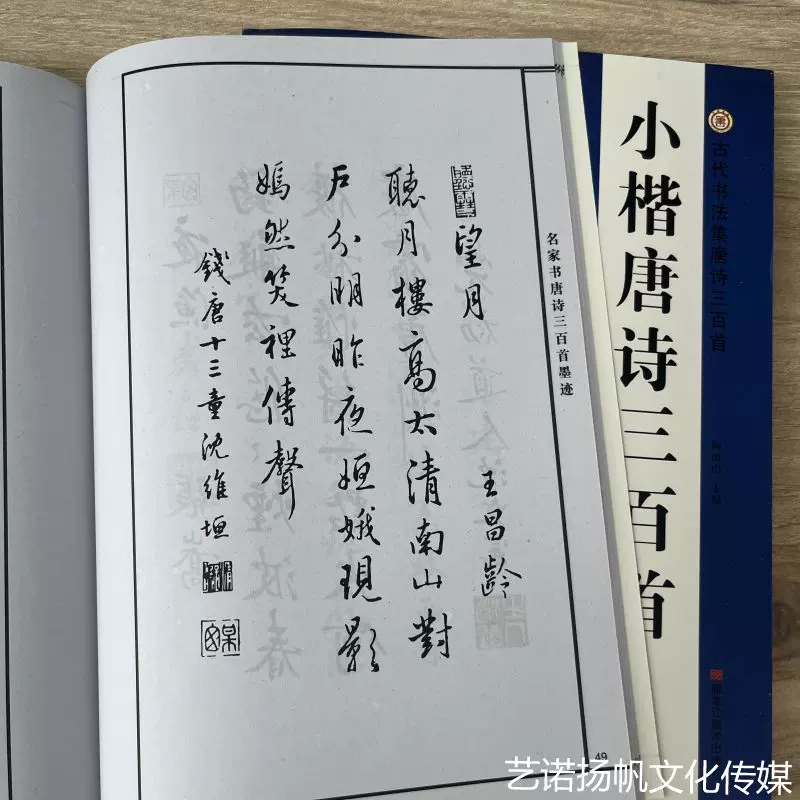 望月
王昌齡
聽月樓高太清南山對
戶分明昨夜姮娥現影
嫣然笑裡傳聲
錢唐十三童沈維垣
名家书唐诗三百首墨迹
49
古代书法集唐诗三百首
小楷唐诗三百首
黑龙江美术出
艺诺扬帆文化传媒